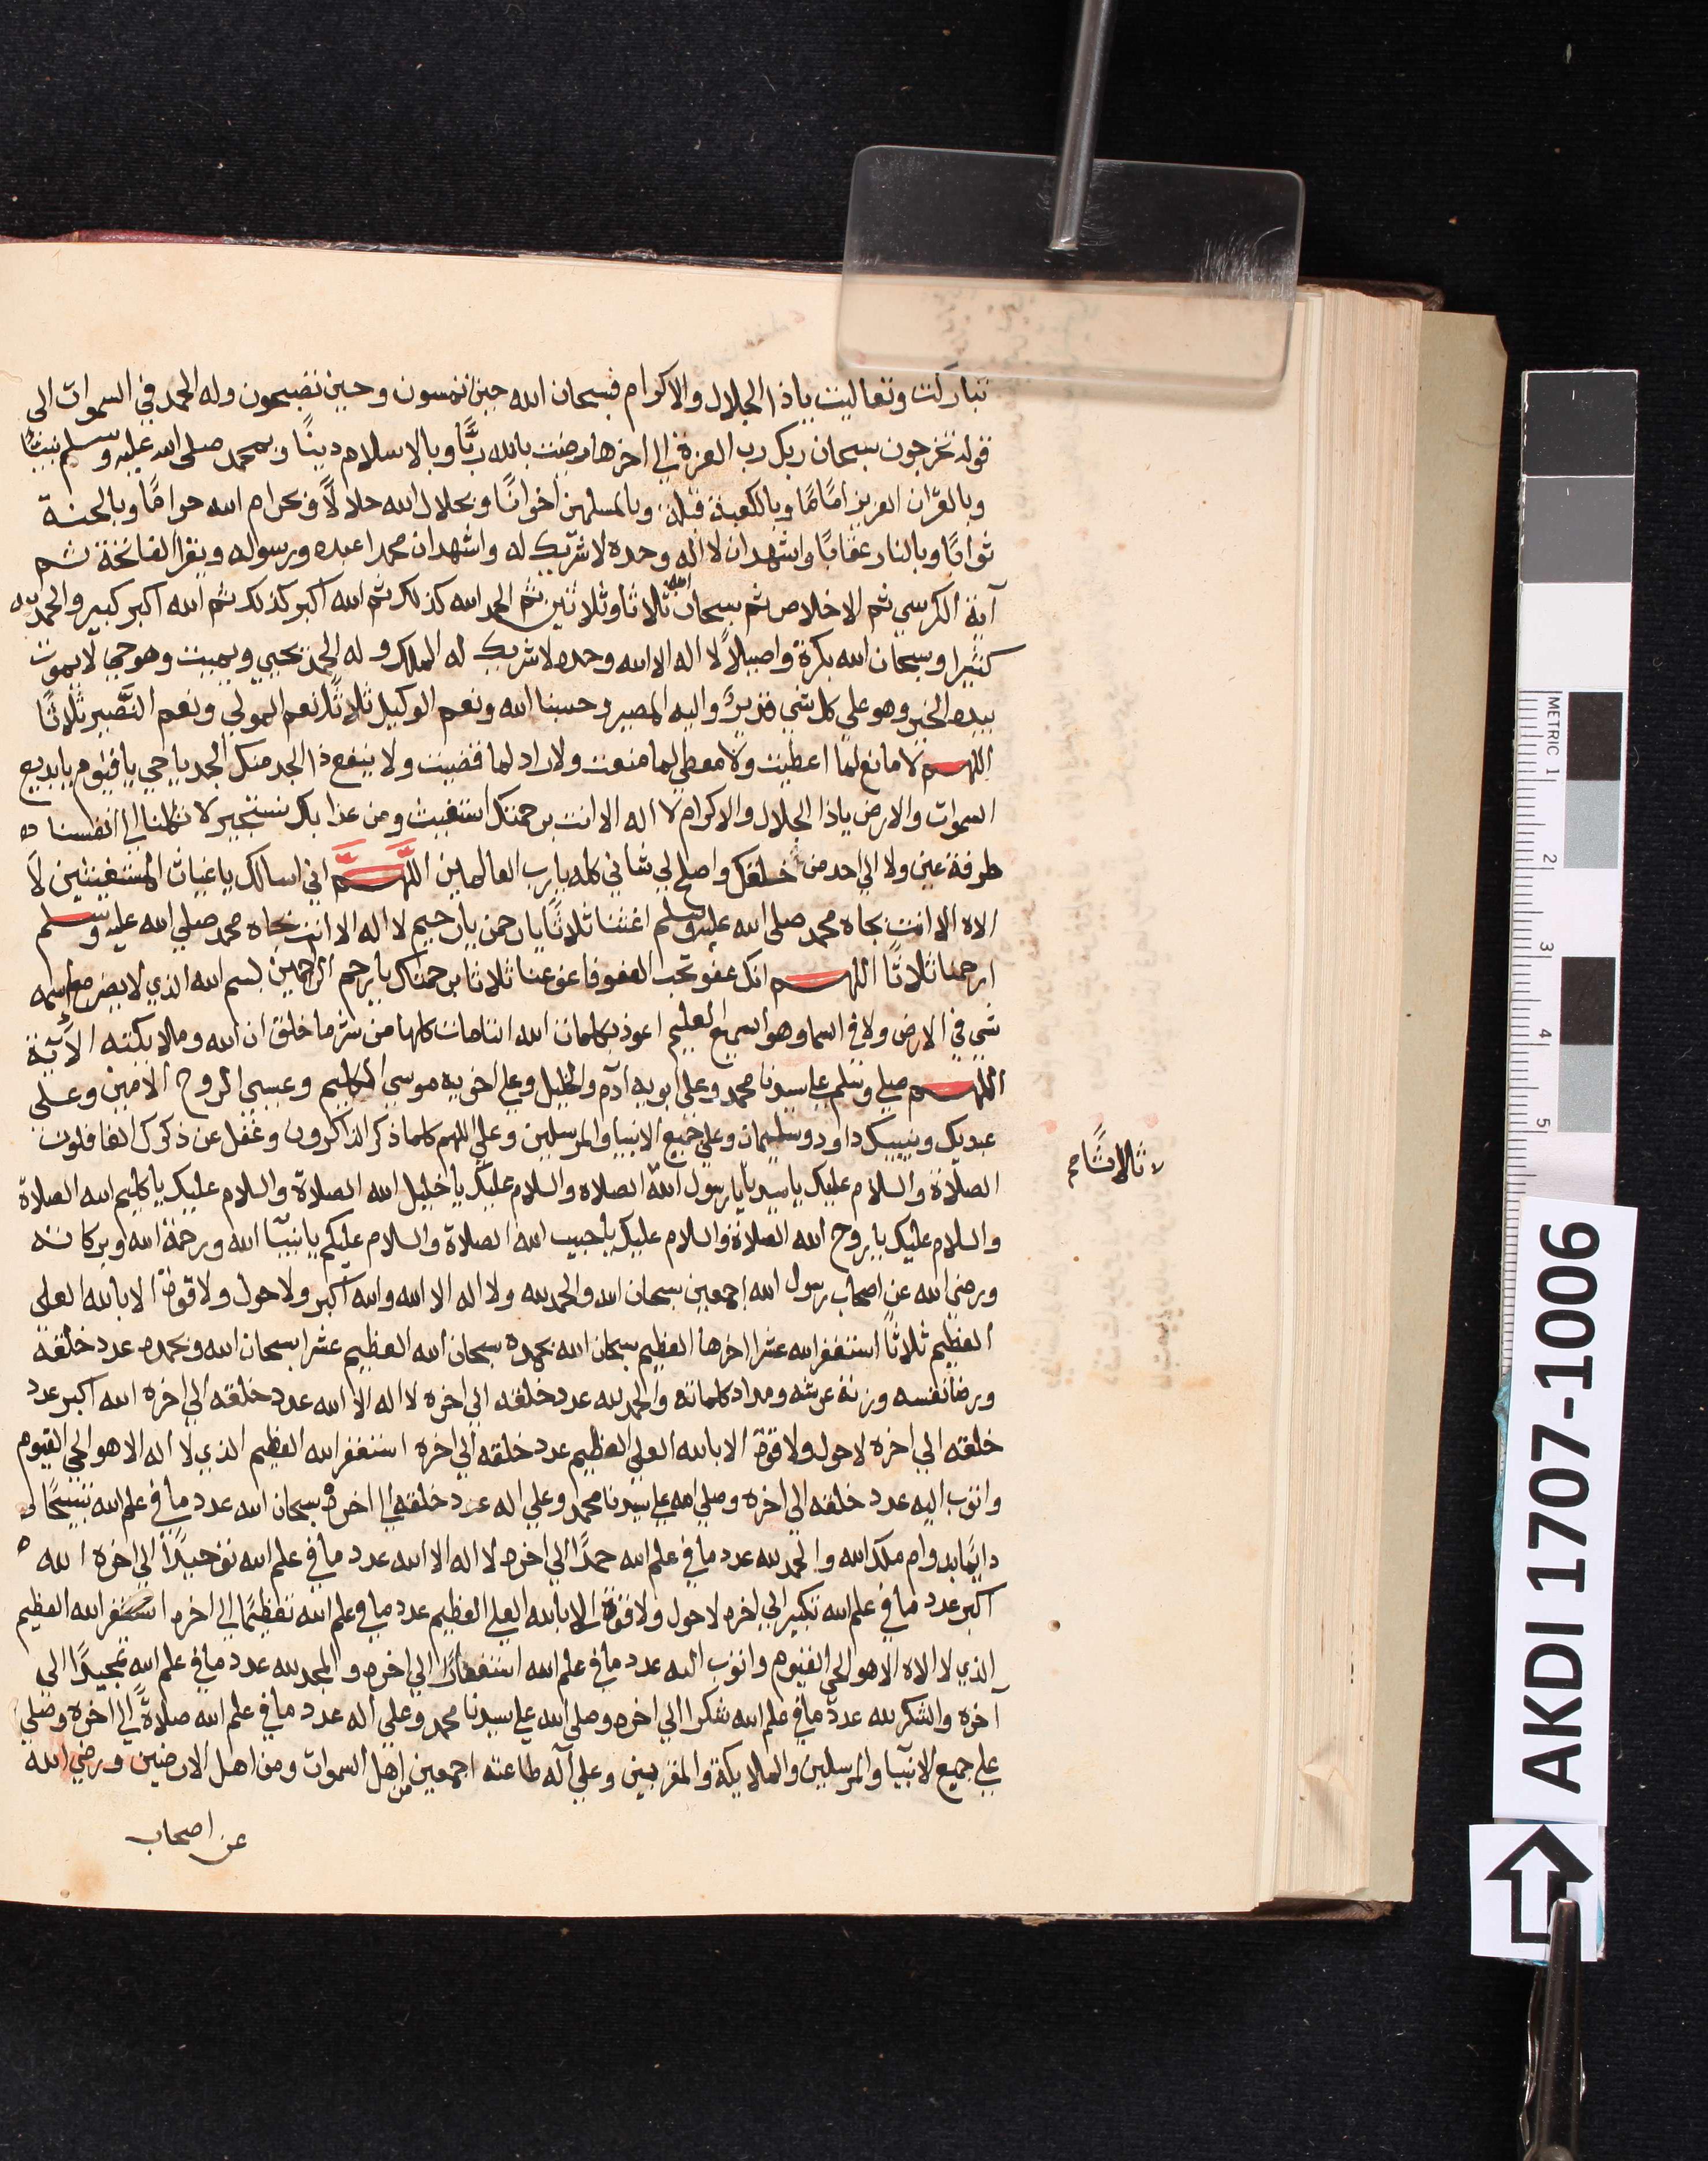 تباركت وتعاليت ياذا الجلال والاكرام فسبحان الله حين تمسون وحين تصبحون وله الحمد في السموات الى
قوله تخرجون سبحان ربك رب العزة الى اخرها رضيت بالله ربًّا وبالاسلام دينًا وبمحمد صلى الله عليه وسلم نبيًّا
وبالقرّان العزيز امامًا وبالكعبة قبلة وبالمسلمين اخوانًا وبحلال الله حلالًا وبحرام الله حرامًا وبالجنة
ثوابًا وبالنار عقابًا واشهد ان لا اله وحده لا شريك له واشهد ان محمدا عبده ورسوله ويقرا الفاتحة ثم
آية الكرسي ثم الاخلاص ثم سبحان الله ثلاثا وثلاثين ثم الحمد الله كذلك ثم الله اكبر كذلك ثم الله اكبر كبير والحمد لله
كثيرا وسبحان الله بكرة واصيلاً لا اله الا الله وحده لا شريك له الملك وله الحمد يحيي ويميت وهو حي لا يموت
بيده الخير وهو على كل شي قدير واليه المصير وحسبنا الله ونعم الوكيل ثلاثًا نعم المولي ونعم النَّصير ثلاثًا
اللهم لا مانع لما اعطيت ولا معطي لما منعت ولا راد لما قضيت ولا ينفع ذا الجد منك الجد يا حي يا قيوم يا بديع
السموات والارض ياذا الجلال والاكرام لا اله الا انت برحمتك استغيث ومن عذابك نستجير لا تكلنا الى انفسنا
طرفة عين ولا الي احد من خلقك واصلح لي شاني كله يارب العالمين اللهم اني اسالك يا غياث المستغيثين لا
الاه الا انت بجاه محمد صلى الله عليه وسلم اغثنا ثلاثًا يا رحمن يا رحيم لا اله الا انت بجاه محمد صلي الله عليه وسلم
ارحمنا ثلاثًا اللهم انك عفو تحب العفو فاعف عنا ثلاثا برحمتك يا ارحم الراحمين بسم الله الذي لا يضر مع اسمه
شي في الارض ولا في السما وهو السميع العليم اعوذ بكلمات الله التامات كلها من شر ما خلق ان الله وملايكته الآية
اللهم صلي وسلم على سيدنا محمد وعلى ابويه ادم والخليل وعلى اخويه موسى الكليم وعيسي الروح الامين وعلى
عبديك ونبييك داود وسليمان وعلى جميع الانبيا والمرسلين وعلي الهم كلما ذكر الذاكرون وغفل عن ذكرك الغافلون
ثلاثًا صح
الصلاة والسلام عليك يا سيدنا يا رسول الله الصلاه والسلام عليك يا خليل الله الصلاة والسلام عليك يا كليم الله الصلاة
والسلام عليك يا روح الله الصلاة والسلام عليك يا حبيب الله الصلاة والسلام عليكم يا انبيآ الله ورحمة الله وبركاته
ورضي الله عن اصحاب رسول الله اجمعين سبحان الله والحمد لله ولا اله الا الله والله اكبر ولا حول ولا قوة الا بالله العلي
العظيم ثلاثًا استغفر الله عشرا اخرها العظيم سبحان الله بحمده سبحان الله العظيم عشرا سبحان الله وبحمده عدد خلقه
ورضا نفسه وزنة عرشه ومداد كلماته والحمد لله عدد خلقه الي اخره لا اله الا الله عدد خلقه الي اخره الله اكبر عدد
خلقه الي اخره لا حول ولا قوة الا بالله العلي العظيم عدد خلقه الي اخره استغفر الله العظيم الذي لا اله الا هو الحي القيوم
واتوب اليه عدد خلقه الى اخره وصلي الله على سيدنا محمد وعلى اله عدد خلقه الى اخره سبحان الله عدد ما في علم الله تسبيحًا
دايمًا بدوام ملك الله والحمد لله عدد ما في علم الله حمدًا الي اخره لا اله الا الله عدد ما في علم الله توحيدًا الي اخره الله
اكبر عدد ما في علم الله تكبير الي اخره لا حول ولا قوة الا بالله العلي العظيم عدد ما في علم الله تعظيمًا الى اخره استغفر الله العظيم
الذي لا الاه الا هو الحي القيوم واتوب اليه عدد ما في علم الله استغفارًا الي اخره والمجد لله عدد ما في علم الله تمجيدًا الى
آخره والشكر لله عدد ما في علم الله شكرا الى اخره وصلى الله على سيدنا محمد وعلي اله عدد ما في علم الله صلاةً الى اخره وصلي
على جميع الانبيآ والمرسلين والملايكة والمقربين وعلى آله طاعته اجمعين من اهل السموات ومن اهل الارضين ورضي الله
عن اصحاب
METRIC 1 2 3 4 5
AKDI 1707-1006